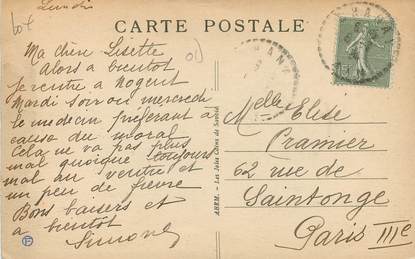 Lundi
CARTE POSTALE
Ma chère Lisette
Alors a bientot
Je rentre a Nogent
Mardi soir ou mercredi
le medecin préferant à
cause du moral
Cela ne va pas plus
mal quoique toujours
mal au ventre et
un peu de fievre
Bons baisers et
a bientot
Simone
ABEM. - Les Jolis Coins de Savoie
Melle Elise
Cramier
62 rue de
Saintonge
Paris IIIe